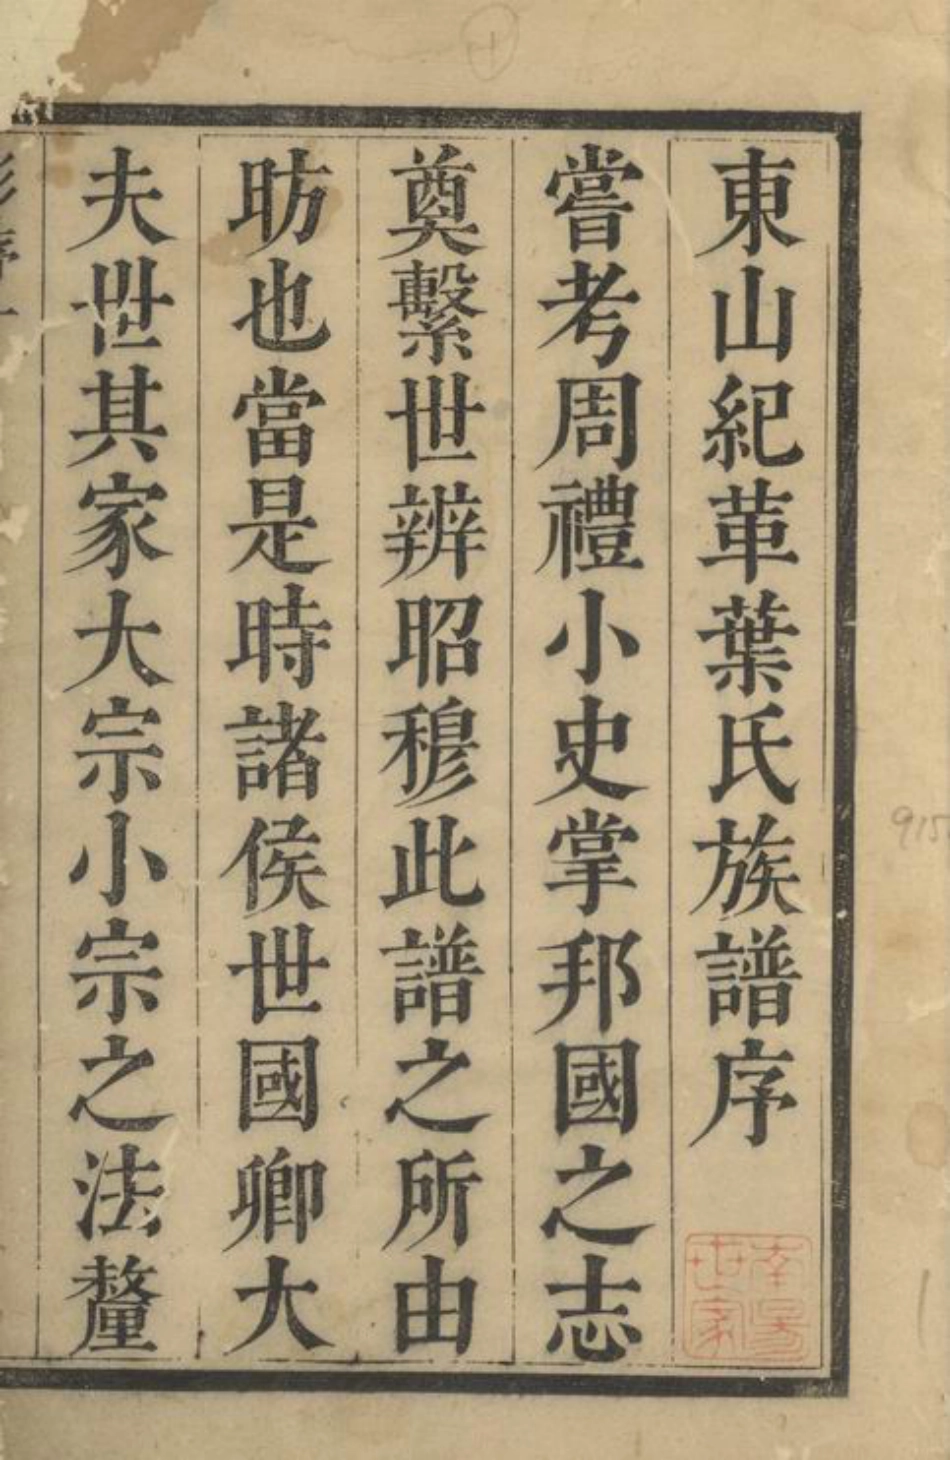 東山紀革葉氏族譜序
嘗考周禮小史掌邦國之志
奠繫世辨昭穆此譜之所由
昉也當是時諸侯世國卿大
夫世其家大宗小宗之法釐
南陽世家
915